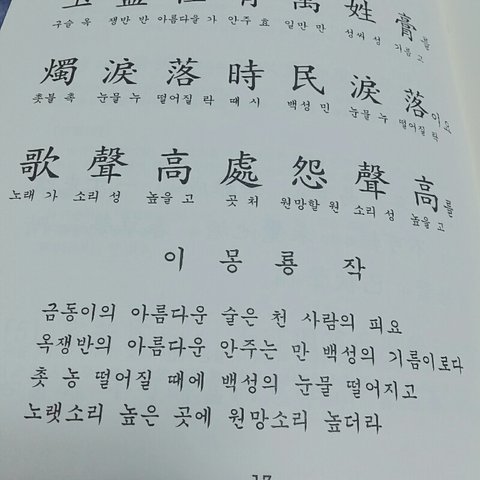 玉盤佳肴萬姓膏를
구슬 옥 쟁반 반 아름다을 가 안주 효 일만 만 성씨 성 기름 고
燭淚落時民淚落이요
촛불 촉 눈물 누 떨어질 락 때 시 백성 민 눈물 누 떨어질 락
歌聲高處怨聲高를
노래 가 소리 성 높을 고 곳 처 원망할 원 소리 성 높을 고
이 몽 룡 작
금동이의 아름다운 술은 천 사람의 피요
옥쟁반의 아름다운 안주는 만 백성의 기름이로다
촛 농 떨어질 때에 백성의 눈물 떨어지고
노랫소리 높은 곳에 원망소리 높더라
17